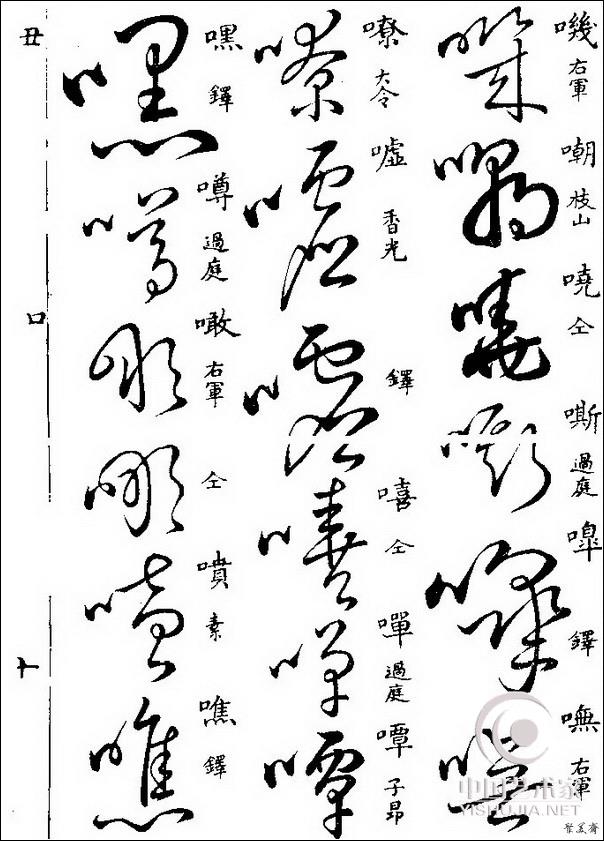 嘰 右軍
嘲 枝山
嘵 仝
嘶 過庭
嘷 鐸
嘸 右軍
嘹 大令
嘘 香光
鐸
嘻 仝
嘽 過庭
嘾 子昂
嘿 鐸
噂 過庭
噉 右軍
仝
噴 素
噍 鐸
丑
口
十
中国艺术家
YISHUJIA.NET